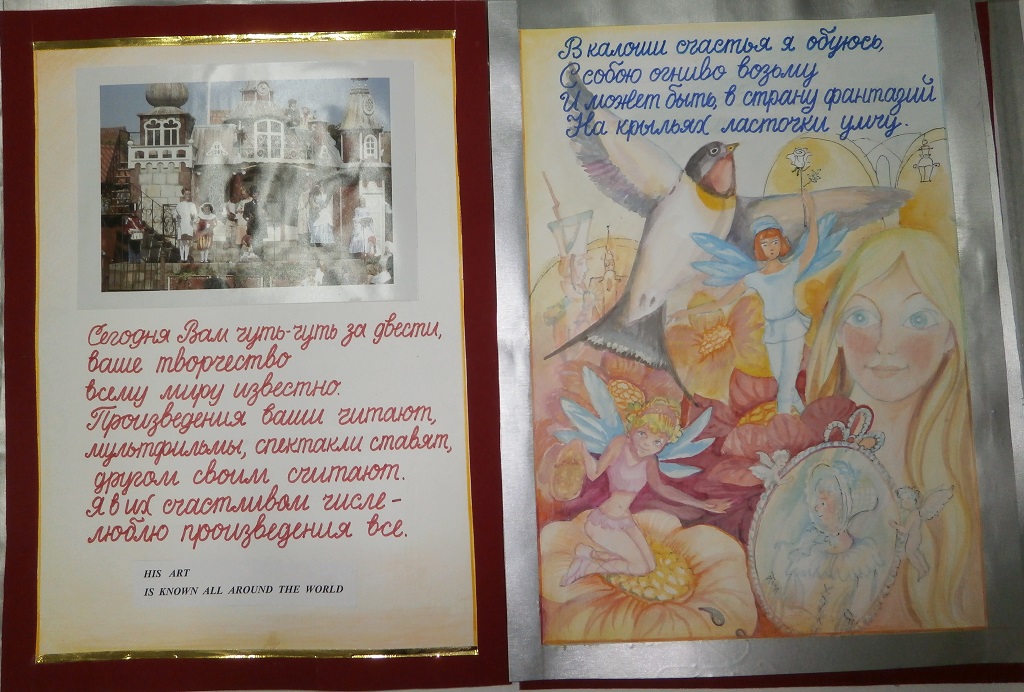 Сегодня Вам чуть-чуть за двести,
ваше творчество
всему миру известно.
Произведения ваши читают,
мультфильмы, спектакли ставят,
другом своим считают.
Я в их счастливом числе-
люблю произведения все.
HIS ART
IS KNOWN ALL AROUND THE WORLD
В калоши счастья я обуюсь,
С собою огниво возьму
И может быть, в страну фантазий
На крыльях ласточки умчу.